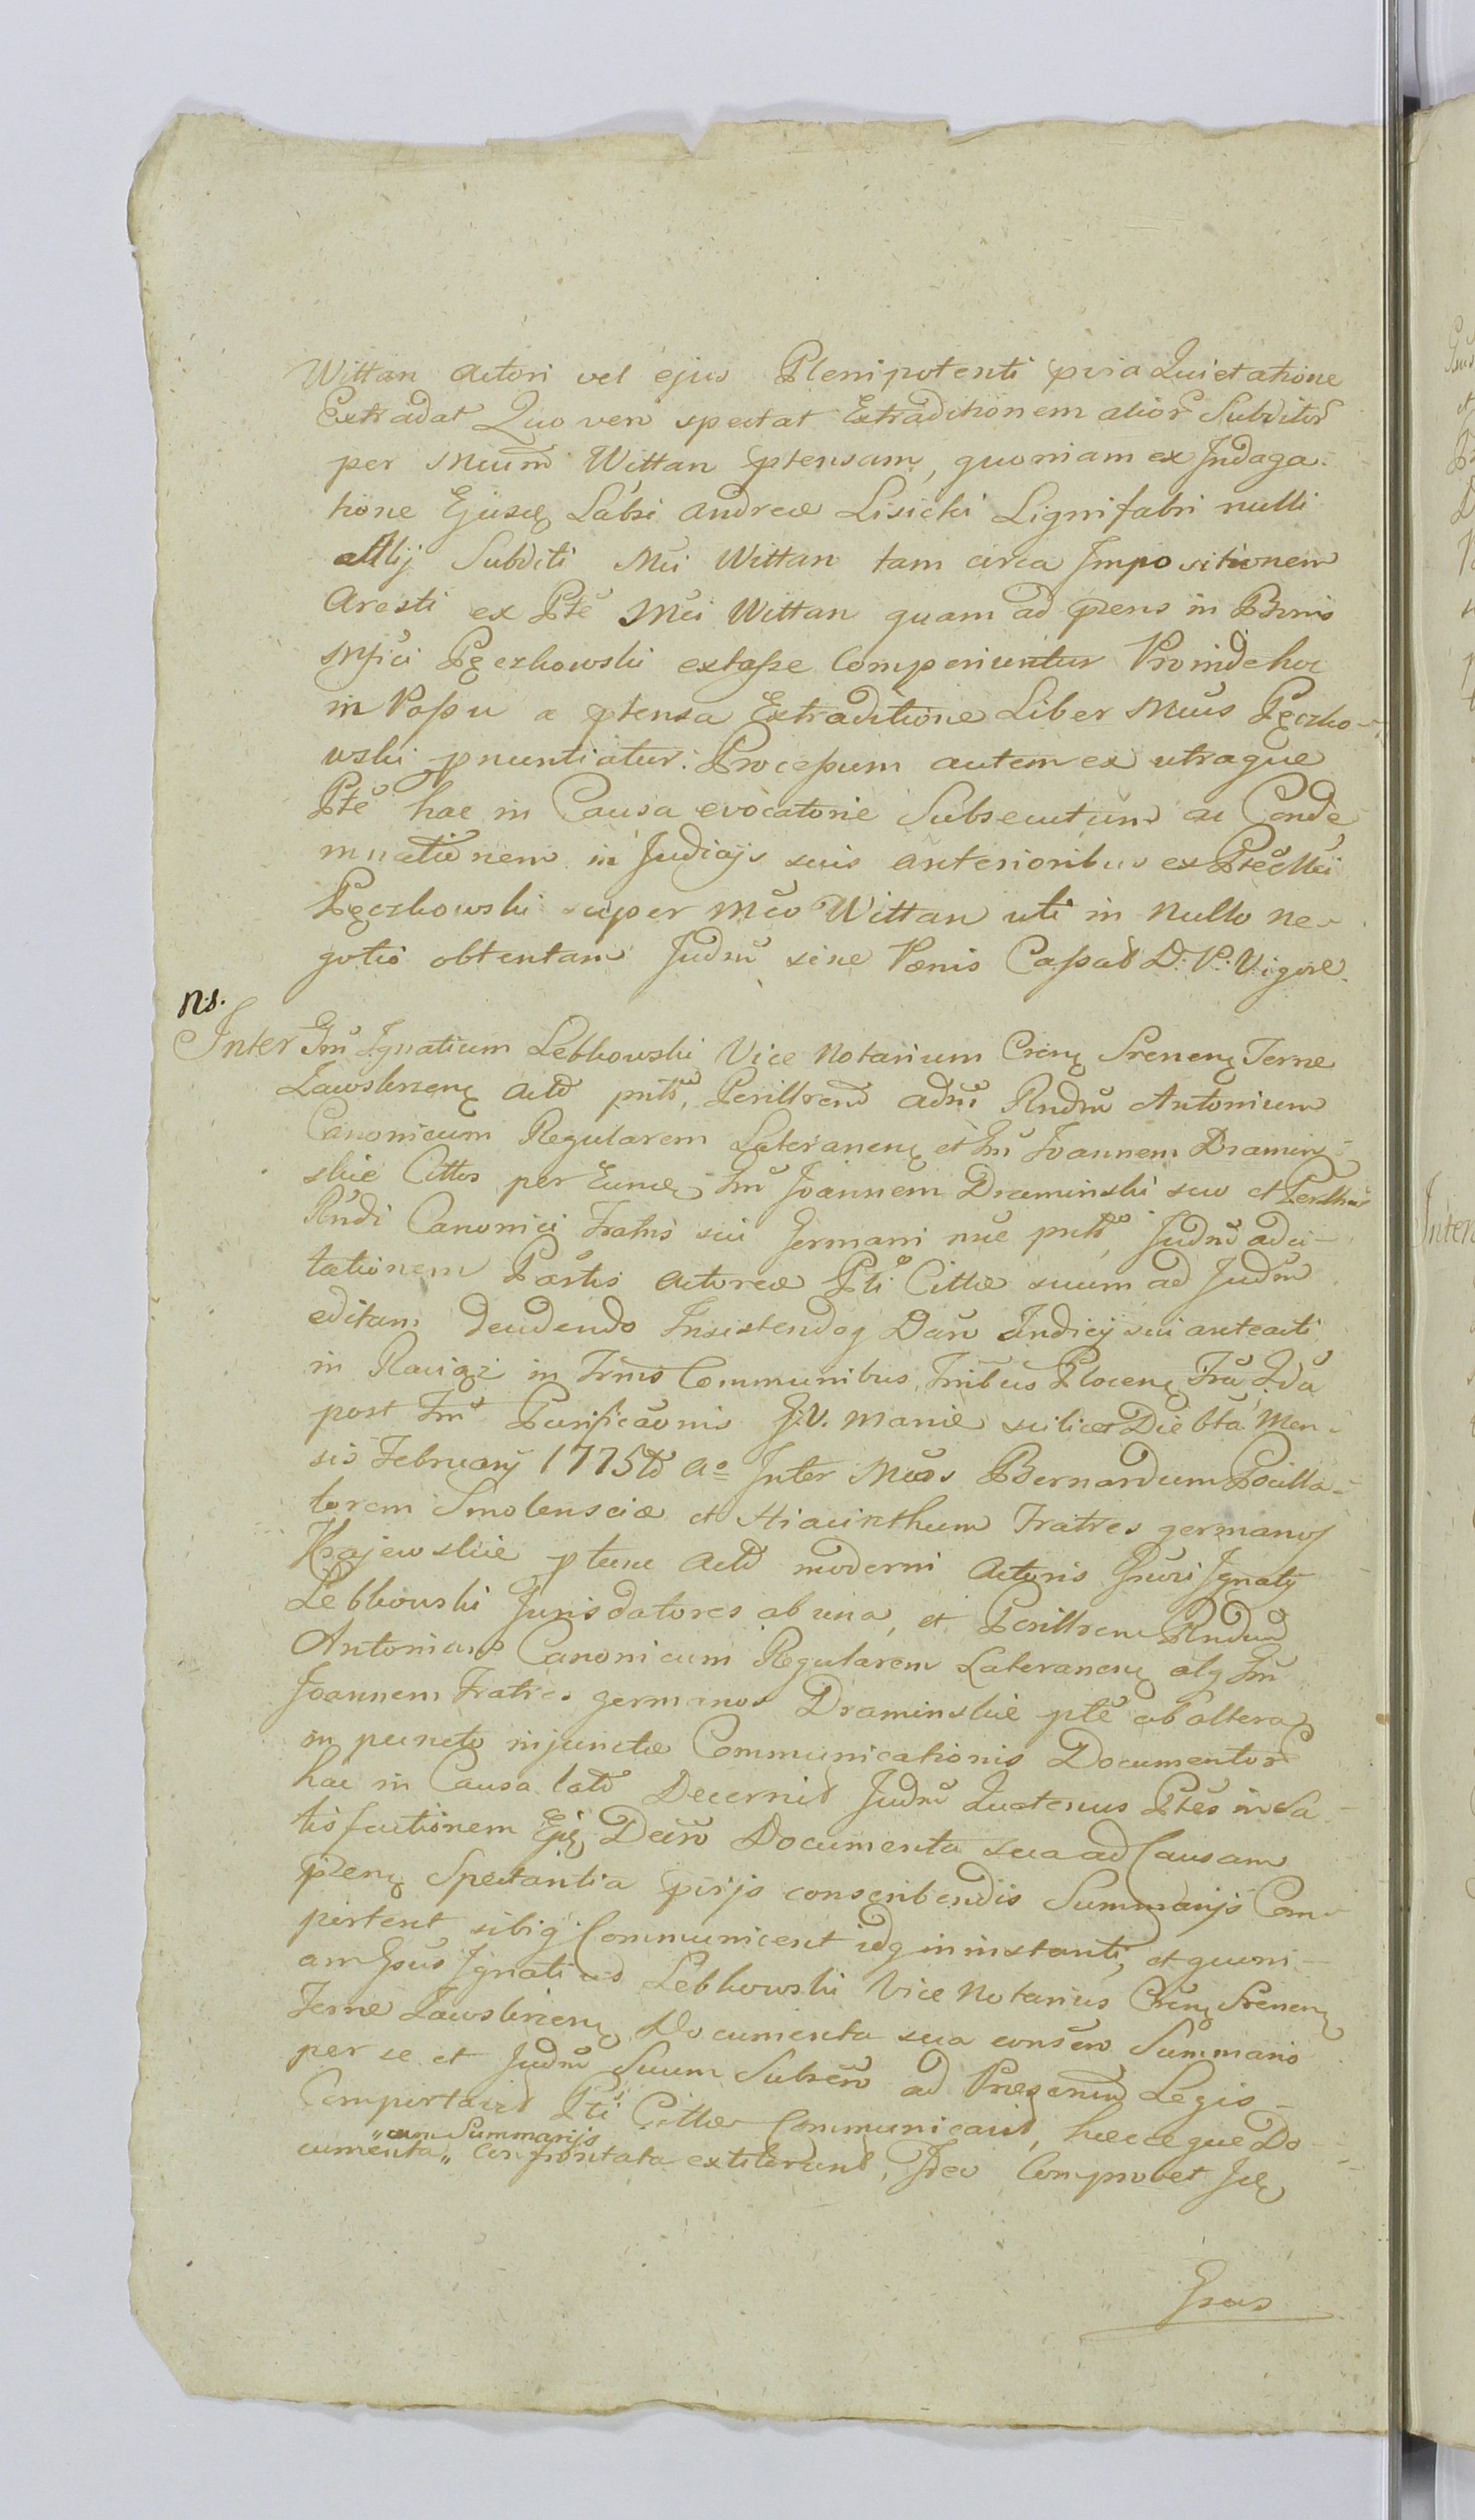 Wittan Actori vel ejus Plenipotenti pvia Quietatione
Extradat Quo vero spectat Extraditionem alior Subditor
per Mcum Wittan ptensam, quoniam ex Indaga-
tione Ejusq Labsi Andreæ Lisicki Lignifabri nulli
allij Subditi Mci Wittan tam circa Impositionem
Aresti ex Pte Mci Wittan quam ad præns in Bonis
Mfici Pęczkowski extasse Comperiuntur Proinde hoc
in Passu a ptensa Extraditione Liber Mcus Pęczko-
wski pnuntiatur. Processum autem ex utraque
Pte hac in Causa evocatorie Subsecutum ac Conde
mnationem in Judicijs suis anterioribus ex Pte Mci
Pęczkowski super Mco Wittan uti in Nullo ne-
gotio obtentam Judm sine Pænis Cassat D. P. Vigore.
ns.
Inter Gm Ignatium Lebkowski Vice Notarium Crens Srenens Terræ
Zawskrzens Actt pntt, Perillrem admm Rndm Antonium
Canonicum Regularem Lateranens et Gm Joannem Dramins-
skie Cittos per Eumq Gm Joannem Draminski suo et Perillris
Rndi Canonici Fratris sui Germani nne pntt, Judm adci-
tationem Partis Actoreæ Pti Cittæ suum ad Judm
editam deudendo Insistendoq Dcto Judicij sui anteacti
in Raciąż in Trmis Communibus, Trribus Plocens Fria 2da
post Fm Purificaonis B. V. Mariæ scilicet Die 6ta Men-
sis February 1775tt Ao Inter Mcos Bernardum Pocilla-
torem Smolensciæ et Hiacinthum Fratres germanos
Krajewskie ptunc Actt moderni Actoris Gnosi Ignatij
Lebkowski Jurisdatores ab una, et Perillrem Rndum
Antonium Canonicum Regularem Lateranens atq Gm
Joannem Fratres germanos Draminskie pte ab altera
in puncto injunctæ Communicationis Documentor
hac in Causa lato Decernit Judm Quatenus Ptes in Sa-
tisfactionem Ejq Dcti Documenta sua ad Causam
præns Spectantia pvijs conscribendis Summarijs Com-
portent sibiq Communicent idq in instanti, et quoni-
am Gsus Ignatius Lebkowski Vice Notarius Crens Srenens
Terræ Zawskrzens Documenta sua conscro Summario
per se et Judm Suum Subscro ad Præscrum Legis
Comportavit Pti Cittæ Communicavit, hæcceque Do-
cumenta „cum Summarijs„ Confrontata extiterunt, Ideo Comprobet Jdq
Gsus